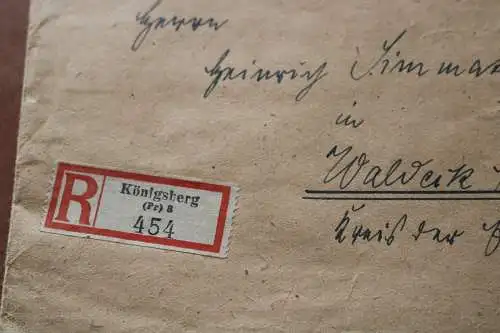 Herrn
Heinrich Simmat
in
Waldeck
Kreis der
R
Königsberg
(Pr) 8
454